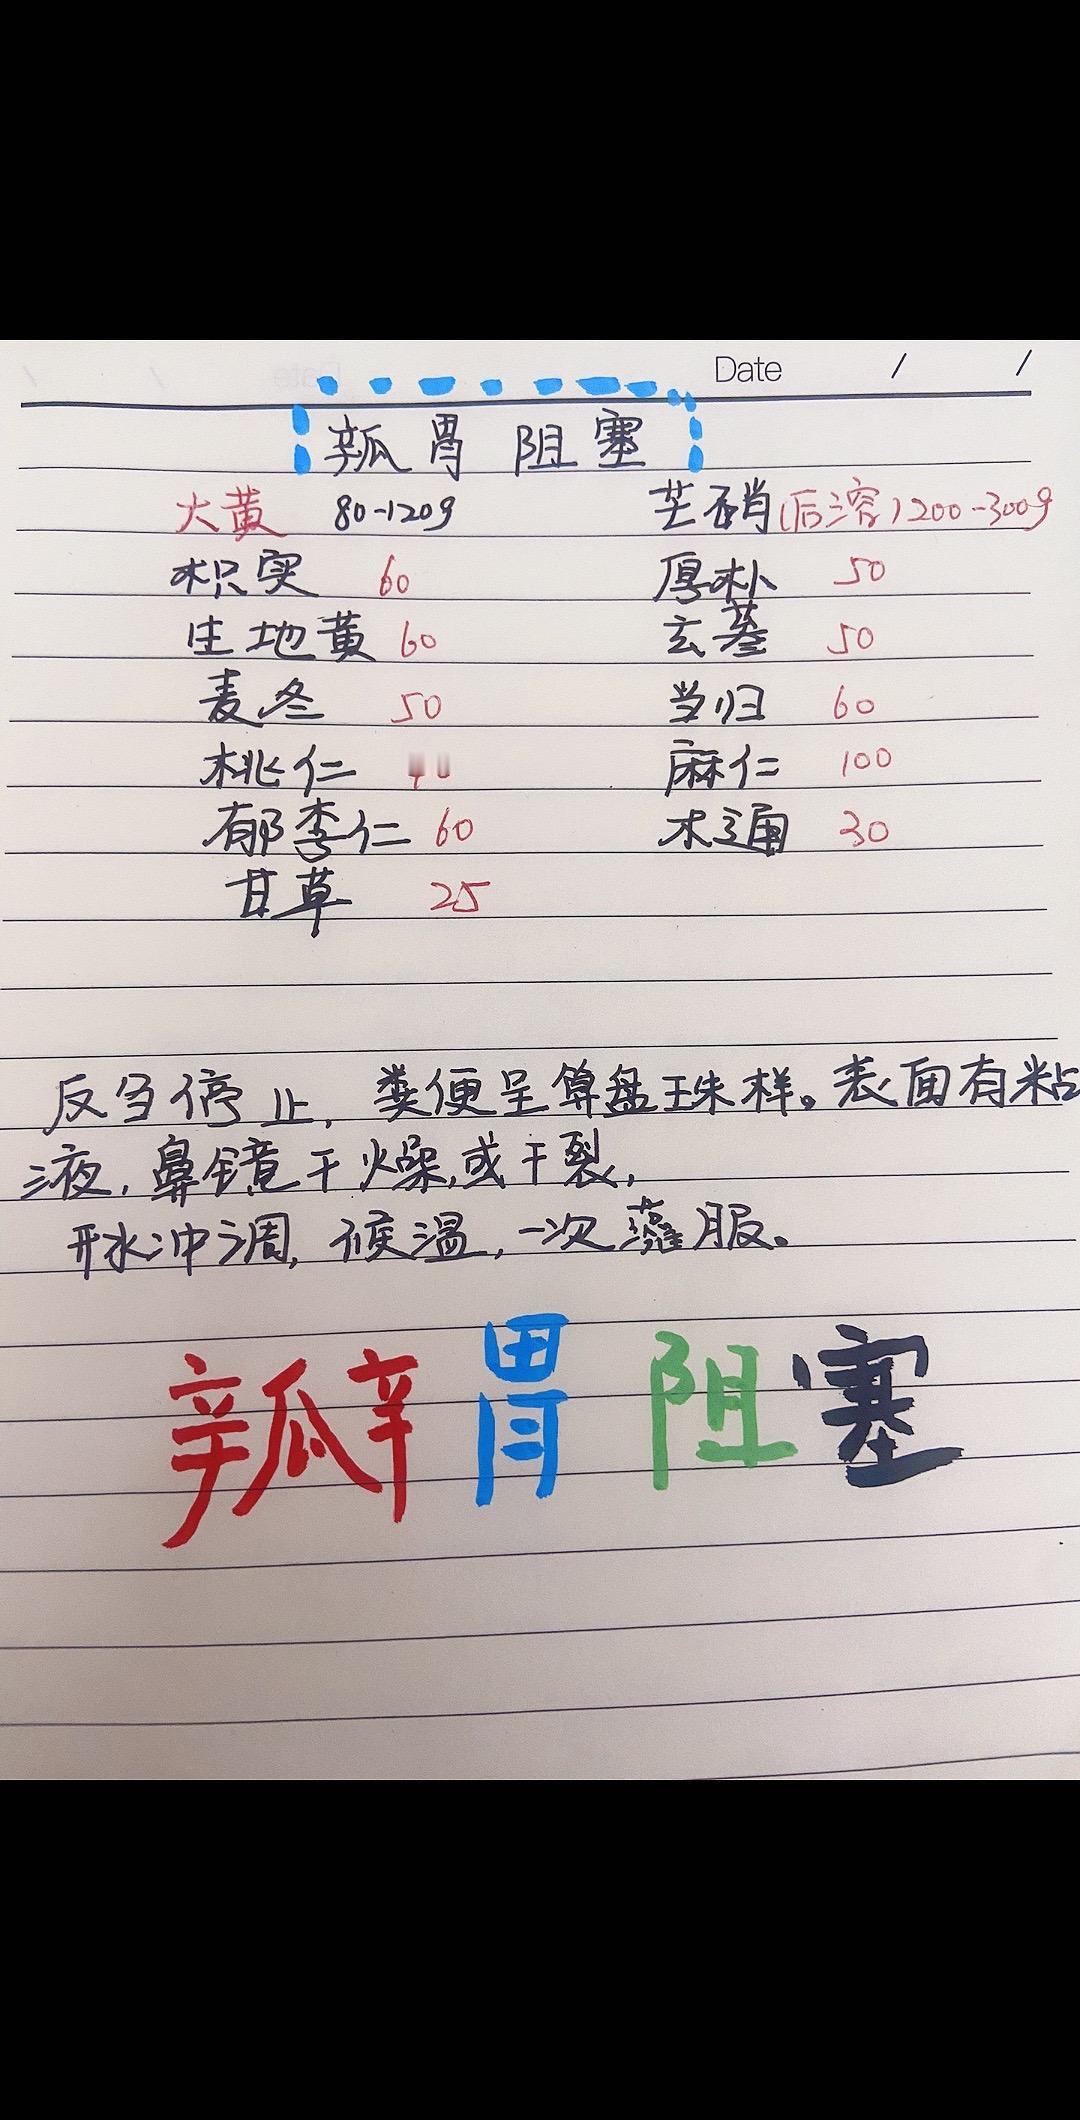 Date / /
瓣胃阻塞
大黄 80-120g 芒硝(后溶)200-300g
枳实 60 厚朴 50
生地黄 60 玄蔘 50
麦冬 50 当归 60
桃仁 麻仁 100
郁李仁 60 木通 30
甘草 25
反刍停止,粪便呈算盘珠样。表面有粘
液,鼻镜干燥,或干裂,
开水冲调,候温,一次灌服。
瓣胃阻塞